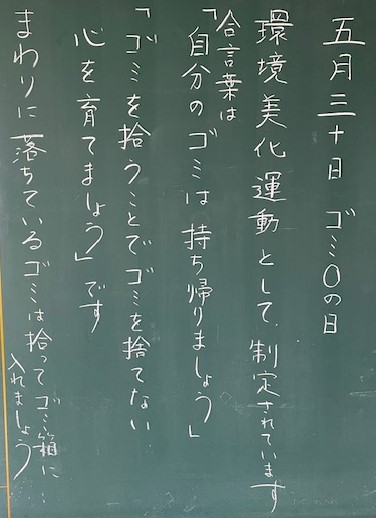 五月三十日 ゴミ0の日
環境美化運動として、制定されています
合言葉は
「自分のゴミは持ち帰りましょう」
「ゴミを拾うことでゴミを捨てない
心を育てましょう」です
まわりに落ちているゴミは拾ってゴミ箱に
入れましょう